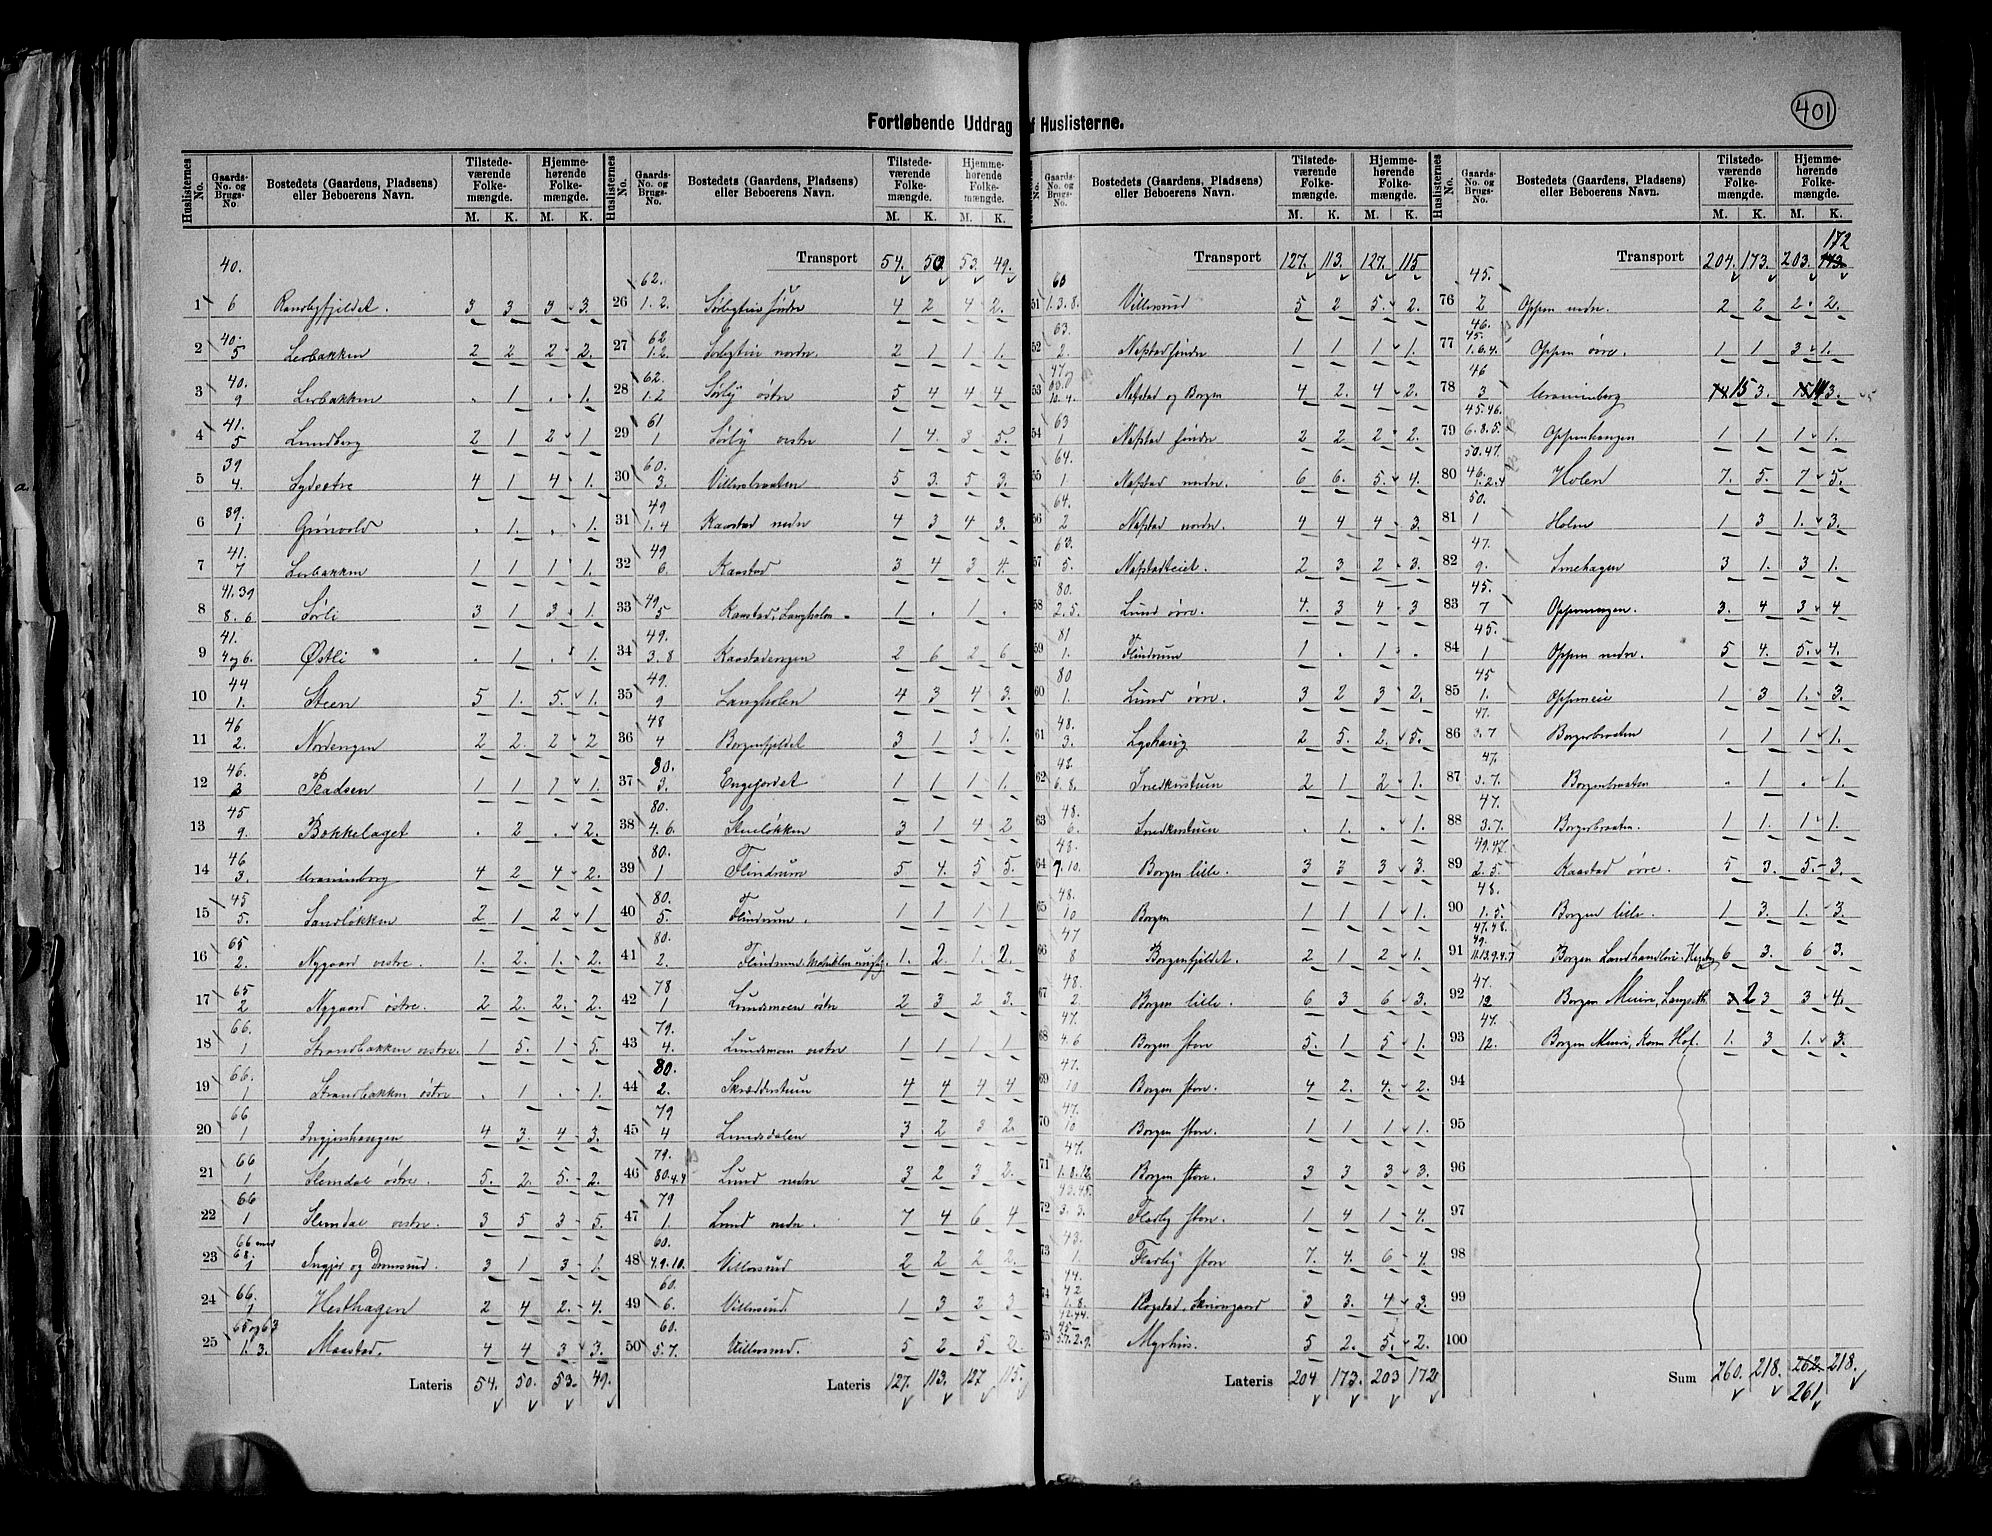 401
Fortløbende Uddrag af Huslisterne.
Huslisternes No. | Gaards-No. og Brugs-No. | Bostedets (Gaardens, Pladsens) eller Beboerens Navn. | Tilstedeværende Folkemængde. M. K. | Hjemmehørende Folkemængde. M. K.
1 | 40. 6 | Ransbyfjeldet. | 3 | 3 | 3 | 3.
2 | 40. 5 | Lerbakken | 2 | 2 | 2 | 2.
3 | 40. 9 | Lerbakken | . | 1 | . | 1.
4 | 41. 5 | Lundberg | 2 | 1 | 2 | 1
5 | 39 4. | Lydsætre | 4 | 1 | 4 | 1.
6 | 39. 1 | Grønvold | . | 1. | . | 1.
7 | 41. 7 | Lerbakken | 1 | 1 | 1 | 1.
8 | 41.39 8.6 | Sørli | 3 | 1 | 3 | 1.
9 | 41. 4 og 6. | Østli | . | 1 | . | 1.
10 | 44 1. | Steen | 5 | 1. | 5. | 1.
11 | 46 2. | Nordengen | 2 | 2. | 2 | 2
12 | 46. 3 | Pladsen | 1 | 1 | 1 | 1.
13 | 45 9. | Bækkelaget | . | 2 | . | 2.
14 | 46 3. | Cranninborg | 4 | 2 | 4 | 2.
15 | 45 5. | Sandløkken | 2 | 1 | 2 | 1
16 | 65 2. | Nygaard vestre. | 1. | 2. | 1. | 2.
17 | 65 2 | Nygaard østre. | 2 | 2. | 2. | 2.
18 | 66. 1 | Strandbakken vestre. | 1 | 5. | 1 | 5.
19 | 66. 1 | Strandbakken østre | . | 1 | . | 1.
20 | 66 1 | Ingjershaugen | 4 | 3. | 4 | 3.
21 | 66 1 | Slemdal østre. | 5. | 2. | 5. | 2.
22 | 66 1 | Slemdal vestre. | 3 | 5 | 3 | 5.
23 | 66 med 68. 1 | Ingjer og Dramsrud. | 3 | 1 | 3 | 1.
24 | 66. 1 | Hesthagen | 2 | 4 | 2. | 4.
25 | 65 og 63 1. 3. | Maastad. | 4 | 4 | 3 | 3.
Lateris 54. 50. 53. 49.
Transport 54. 50. 53. 49.
26 | 62. 1. 2. | Sørligtien søndre | 4 | 2 | 4 | 2.
27 | 62 1.2. | Sørligtien nordre. | 2 | 1 | 1 | 1.
28 | 62. 1.2 | Sørly østre | 5 | 4 | 4 | 4
29 | 61 1 | Sørly vestre | 1 | 4. | 3 | 5.
30 | 60. 3. | Villersbraaten | 5 | 3. | 5 | 3.
31 | 49 1.4 | Kaastad nedre | 4 | 3 | 4 | 3.
32 | 49 6. | Kaastad | 3 | 4 | 3 | 4.
33 | 49. 5 | Kaastad, Langholen | 1 | . | 1 | .
34 | 49. 3.8 | Kaastadengen | 2 | 6 | 2 | 6
35 | 49. 9 | Langholen | 4 | 3 | 4 | 3.
36 | 48 4 | Borgenfjeldet | 3 | 1 | 3 | 1.
37 | 80. 3. | Engefordet | 1 | 1 | 1 | 1.
38 | 80. 4.6. | Steneløkken | 3 | 1 | 4 | 2
39 | 80. 1 | Flindrum | 5 | 4. | 5 | 5.
40 | 80. 5. | Flindrum. | 1 | 1 | 1 | 1
41 | 80. 2. | Flindrum | 1. | 2. | 1. | 2.
42 | 78 1 | Lundsmoen østre | 2 | 3 | 2 | 3.
43 | 79. 4. | Lundsmoen vestre | 1 | 1 | 1 | 1
44 | 80. 2. | Skrædderstuen | 4 | 4 | 4 | 4
45 | 79 4 | Lundsdalen | 3 | 2 | 3 | 2.
46 | 79. 80.4.4 | Lund nedre | 3 | 2 | 3 | 2
47 | 79 1. | Lund nedre. | 7 | 4 | 6 | 4
48 | 60. 4.9.10. | Villersrud | 2 | 2 | 2 | 2.
49 | 60. 6. | Villersrud. | 1 | 3 | 2 | 3
50 | 60. 5.7. | Villersrud. | 5 | 2 | 5 | 2.
Lateris 127. 113. 127 115.
Transport 127. 113. 127. 115
51 | 60 1.3.8. | Villersrud | 5 | 2 | 5. | 2.
52 | 63. 2. | Nafstad søndre | 1 | 1 | 1 | 1.
53 | Nafstad og Borgen | 4 | 2 | 4 | 2.
54 | 63 1 | Nafstad søndre | 2 | 2 | 2 | 2.
55 | 64. 1 | Nafstad nedre. | 6 | 6. | 5. | 4.
56 | 64. 2 | Nafstad nordre. | 4 | 4 | 4 | 3.
57 | 63. 5. | Nafstadteiet. | 2 | 3 | 2 | 3.
58 | 80. 2.5. | Lund øvre. | 4. | 3 | 4 | 3
59 | 81 1. | Flindrum | 1 | . | 1 | .
60 | 80 1. | Lund øvre. | 3 | 2 | 3 | 2.
61 | 48. 3. | Lyshaug | 2 | 5. | 2. | 5.
62 | 48. 6.8. | Snedkerstuen | 2 | 1 | 2 | 1.
63 | 48. 6. | Snedkerstuen | . | 1. | . | 1.
64 | 48. 9.10. | Borgen lille. | 3 | 3 | 3 | 3.
65 | 48. 10 | Borgen | 1 | 1 | 1 | 1.
66 | 47 8 | Borgenfjeldet. | 2 | 1 | 2 | 1.
67 | 48. 2. | Borgen lille. | 6 | 3 | 6 | 3.
68 | 47. 4.6 | Borgen store | 5. | 1 | 5 | 1.
69 | 47. 10 | Borgen store. | 4 | 2. | 4. | 2.
70 | 47. 10 | Borgen store. | 1 | 1 | 1 | 1.
71 | 47. 1.8.12. | Borgen store. | 3 | 3 | 3 | 3.
72 | 43.45. 3.3. | Flesby store. | 1 | 4 | 1 | 4.
73 | 43. 1. | Flesby store | 7. | 4. | 6 | 4.
74 | Rogstad, Skriongaard | 3 | 3. | 4 | 3.
75 | Myrhus. | 5 | 2. | 5. | 2.
Lateris 204 173. 203 172
Transport 204. 173. 203. 173. 172
76 | 45. 2 | Oppen nedre. | 2 | 2 | 2 | 2.
77 | 46. 45. 1.6.4. | Oppen øvre. | 1 | 1 | 3 | 1.
78 | 46 3 | Cranninborg | 14 15 | 3. | 15 14 | 3.
79 | 45.46. 6.8.5. | Oppenhaugen | 1 | 1 | 1 | 1.
80 | 50.47. 46. 1.2.4 | Holen | 7. | 5. | 7 | 5.
81 | 50. 1 | Holen | 1 | 3 | 1. | 3.
82 | 47. 9. | Smehagen | 3 | 1. | 3 | 1.
83 | 45. 7 | Oppenengen. | 3. | 4 | 3 | 4
84 | 45. 1 | Oppen nedre | 5 | 4. | 5. | 4.
85 | 45 1. | Oppeneie | 1 | 3 | 1. | 3.
86 | 47. 3.7 | Borgerbraaten | 1 | 1 | 1 | 1.
87 | 47. 3.7. | Borgenbraaten | . | 1 | . | 1.
88 | 47. 3.7. | Borgerbraaten. | 1 | 1. | 1 | 1.
89 | 49.47. 2.5. | Kaastad øvre. | 5 | 3. | 5 | 3.
90 | 48. 1.5. | Borgen lille. | 1 | 3. | 1. | 3.
91 | 47.48. 49. 11.13.9.4.7 | Borgen Landhandleri | 6 | 3. | 6 | 3.
92 | 47. 12 | Borgen Meieri, Langseth | 3 2 | 3 | 3 | 4.
93 | 47. 12. | Borgen Meieri, Karen Hof. | 1. | 3 | 1. | 3.
94
95
96
97
98
99
100
Sum 260. 218. 262. 218.
261.